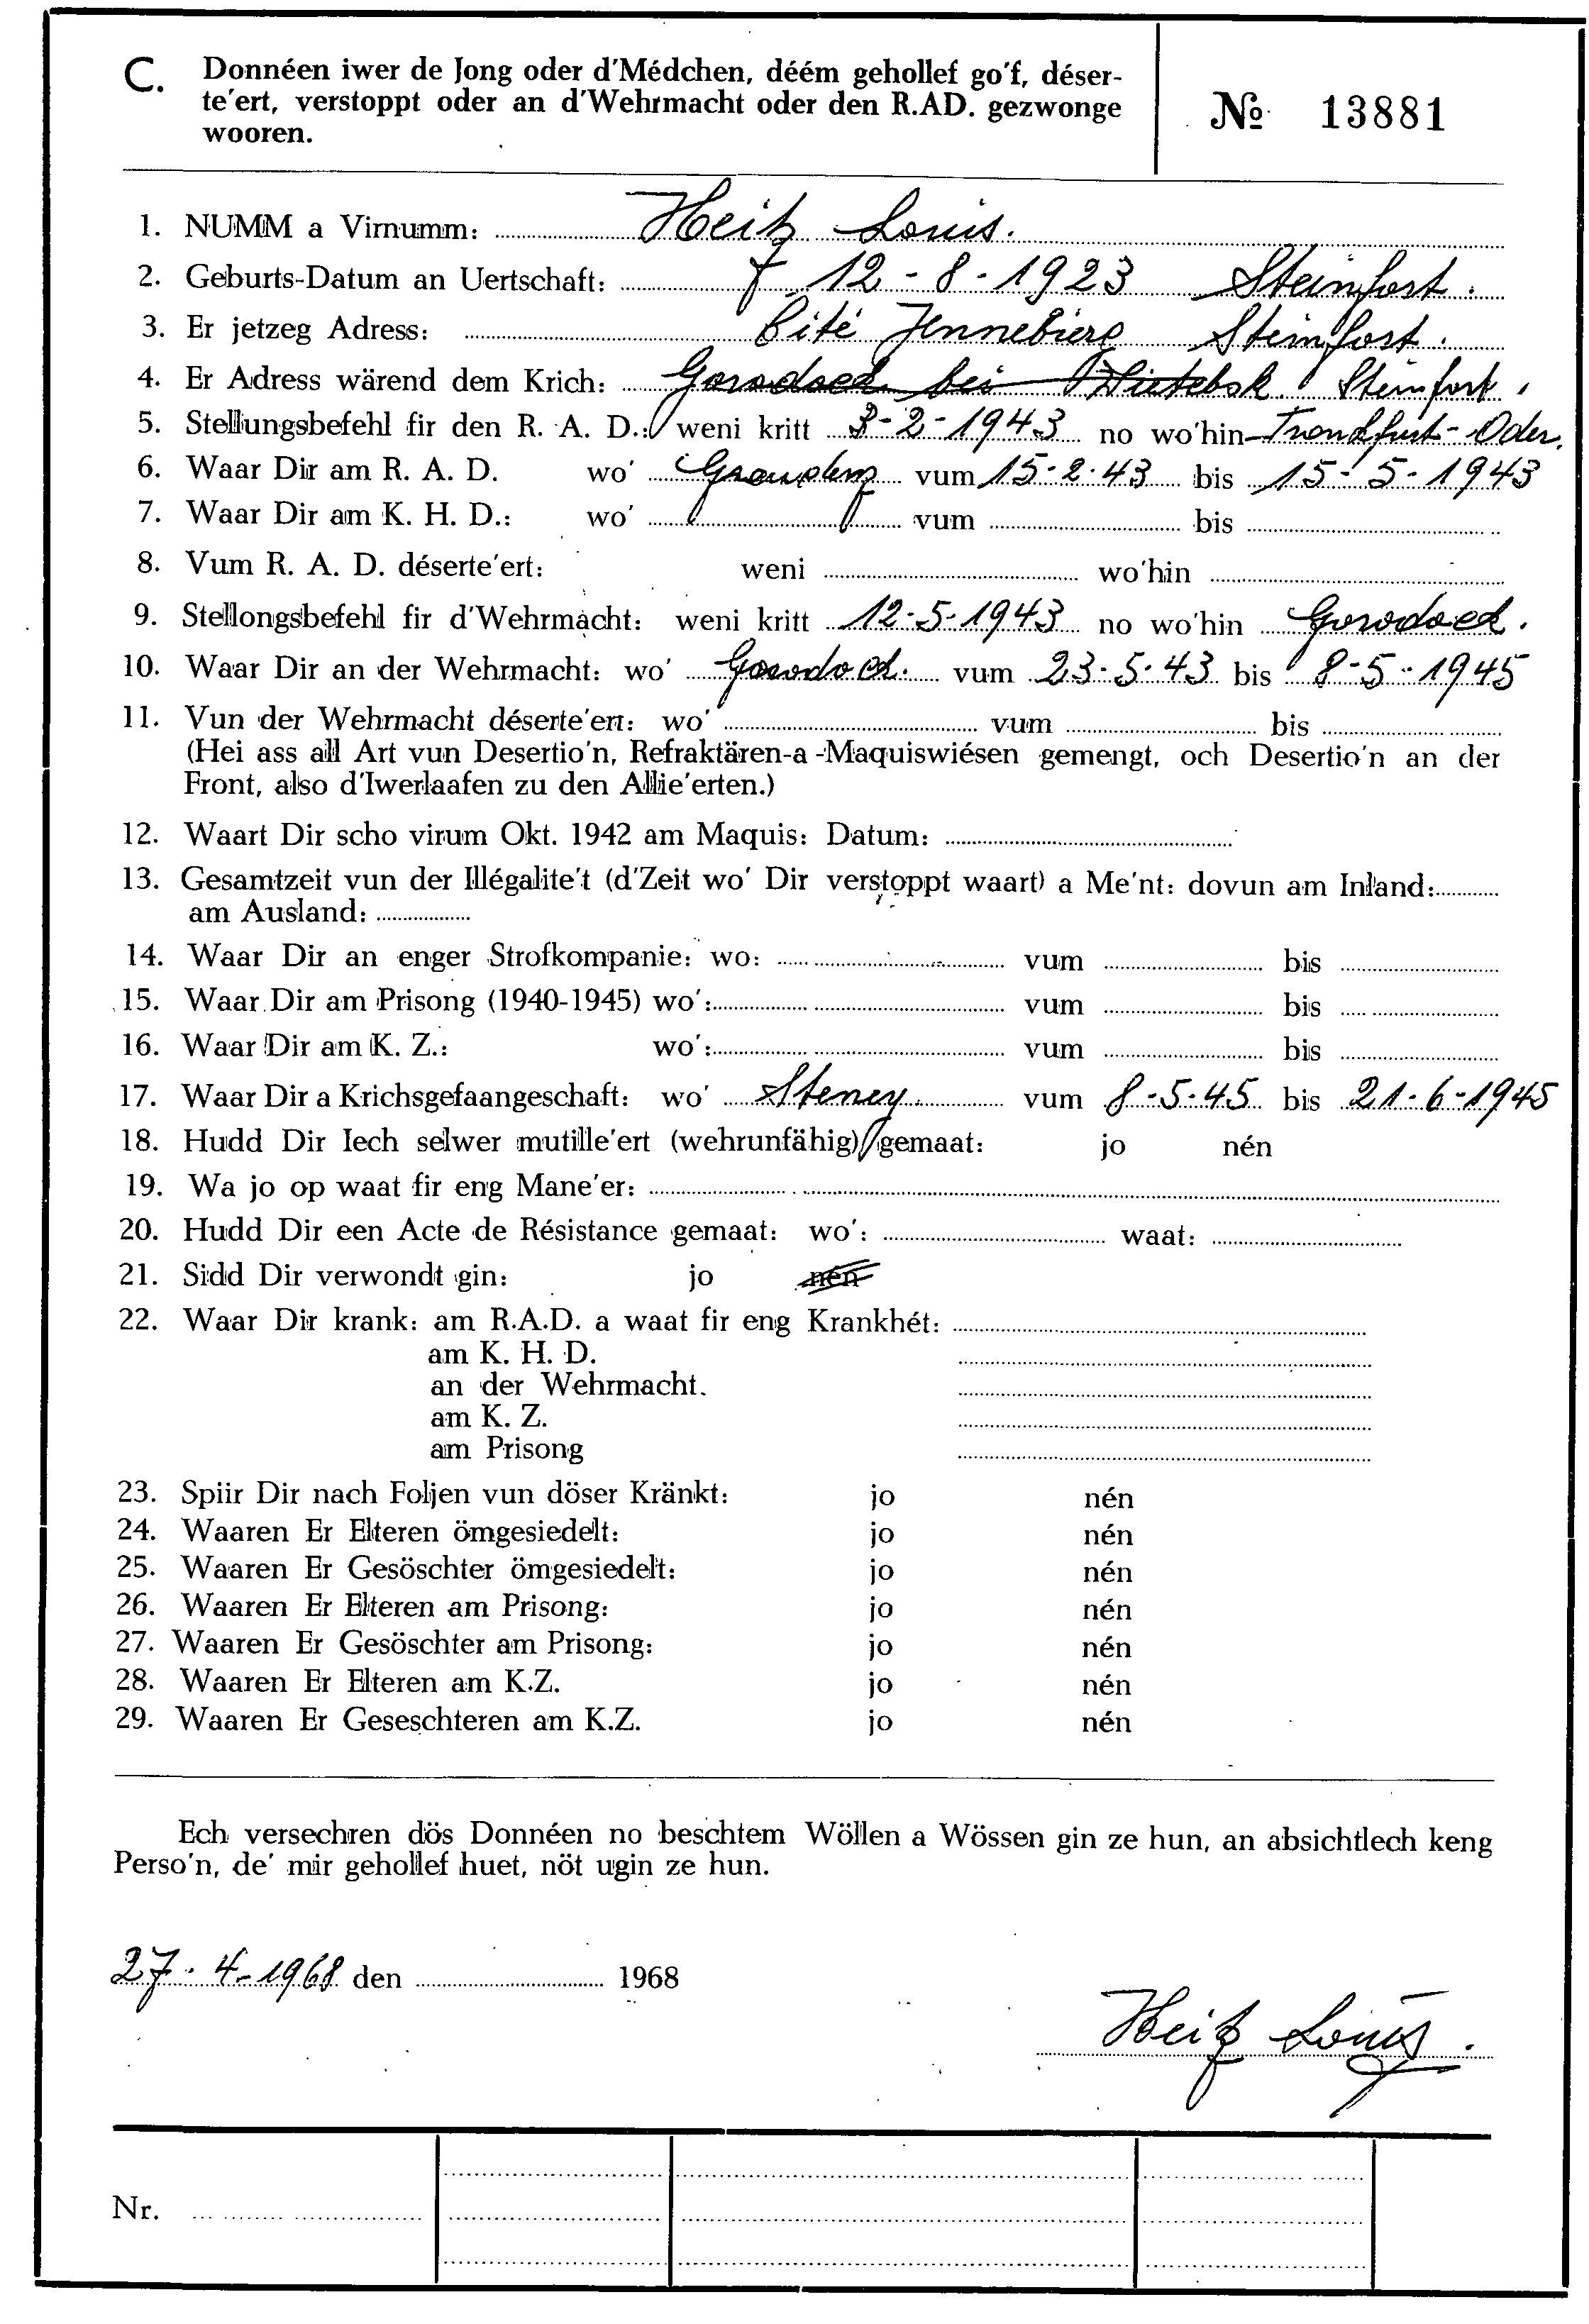 C. Donnéen iwer de Jong oder d'Médchen, déém gehollef go'f, déser-
te'ert, verstoppt oder an d'Wehrmacht oder den R.AD. gezwonge
wooren.
№ 13881
1. NUMM a Virnumm: Heitz Louis.
2. Geburts-Datum an Uertschaft: 12-8-1923 Steinfort.
3. Er jetzeg Adress: Cité Jennebierg Steinfort.
4. Er Adress wärend dem Krich: Gorodock bei Wietebsk Steinfort.
5. Stellungsbefehl fir den R. A. D.: weni kritt 3-2-1943 no wo'hin Frankfurt-Oder.
6. Waar Dir am R. A. D. wo' Graudenz vum 15-2-43 bis 15-5-1943
7. Waar Dir am K. H. D.: wo' vum bis
8. Vum R. A. D. déserte'ert: weni wo'hin
9. Stellongsbefehl fir d'Wehrmacht: weni kritt 12-5-1943 no wo'hin Gorodock.
10. Waar Dir an der Wehrmacht: wo' Gorodock. vum 23-5-43 bis 8-5-1945
11. Vun der Wehrmacht déserte'ert: wo' vum bis
(Hei ass all Art vun Desertio'n, Refraktären-a-Maquiswiésen gemengt, och Desertio'n an der
Front, also d'Iwerlaafen zu den Allie'erten.)
12. Waart Dir scho virum Okt. 1942 am Maquis: Datum:
13. Gesamtzeit vun der Illégalite't (d'Zeit wo' Dir verstoppt waart) a Me'nt: dovun am Inland:
am Ausland:
14. Waar Dir an enger Strofkompanie: wo: vum bis
15. Waar Dir am Prisong (1940-1945) wo': vum bis
16. Waar Dir am K. Z.: wo': vum bis
17. Waar Dir a Krichsgefaangeschaft: wo' Steney. vum 8-5-45 bis 21-6-1945
18. Hudd Dir Iech selwer mutille'ert (wehrunfähig) gemaat: jo nén
19. Wa jo op waat fir eng Mane'er:
20. Hudd Dir een Acte de Résistance gemaat: wo': waat:
21. Sidd Dir verwondt gin: jo nén
22. Waar Dir krank: am R.A.D. a waat fir eng Krankhét:
am K. H. D.
an der Wehrmacht.
am K. Z.
am Prisong
23. Spiir Dir nach Foljen vun döser Kränkt: jo nén
24. Waaren Er Elteren ömgesiedelt: jo nén
25. Waaren Er Gesöschter ömgesiedelt: jo nén
26. Waaren Er Elteren am Prisong: jo nén
27. Waaren Er Gesöschter am Prisong: jo nén
28. Waaren Er Elteren am K.Z. jo nén
29. Waaren Er Geseschteren am K.Z. jo nén
Ech versechren dös Donnéen no beschtem Wöllen a Wössen gin ze hun, an absichtlech keng
Perso'n, de' mir gehollef huet, nöt ugin ze hun.
27.4-1968 den 1968
Heitz Louis.
Nr.